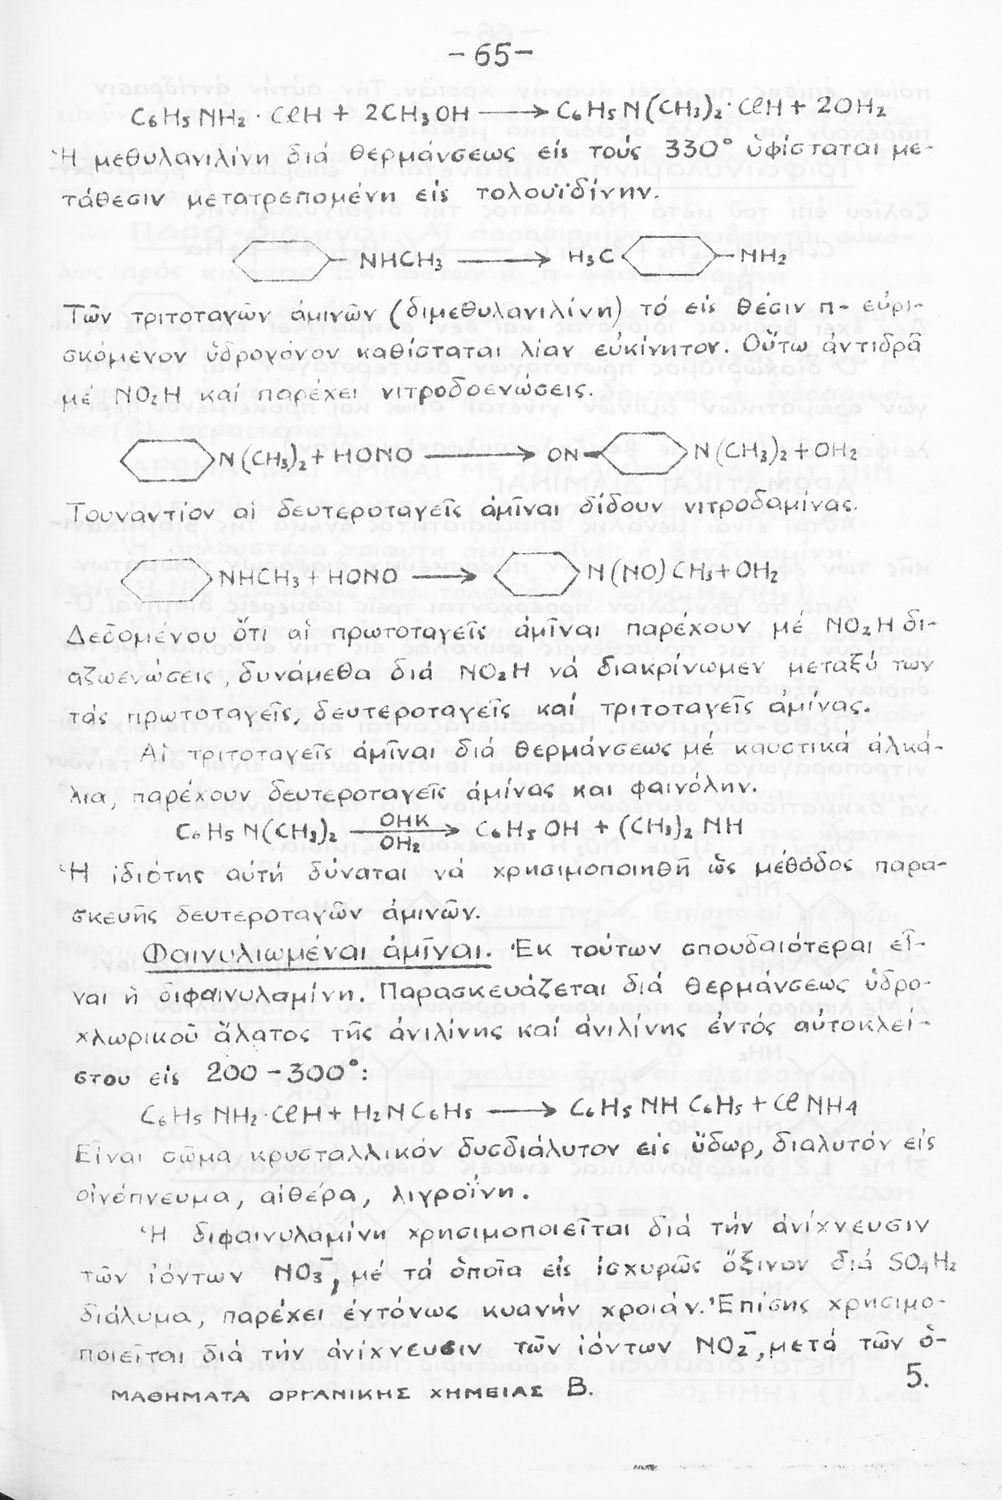 -65-
C₆H₅NH₂·CℓH + 2CH₃OH ⟶ C₆H₅N(CH₃)₂·CℓH + 2OH₂
Ἡ μεθυλανιλίνη διά θερμάνσεως εἰς τούς 330° ὑφίσταται με-
τάθεσιν μετατρεπομένη εἰς τολουϊδίνην.
NHCH₃ ⟶ H₃C NH₂
Τῶν τριτοταγῶν ἀμινῶν (διμεθυλανιλίνη) τό εἰς θέσιν π- εὑρι-
σκόμενον ὑδρογόνον καθίσταται λίαν εὐκίνητον. Οὕτω ἀντιδρᾶ
μέ NO₂H καί παρέχει νιτροδοενώσεις.
N(CH₃)₂ + HONO ⟶ ON N(CH₃)₂ + OH₂
Τουναντίον αἱ δευτεροταγεῖς ἀμῖναι δίδουν νιτροδαμίνας.
NHCH₃ + HONO ⟶ N(NO)CH₃ + OH₂
Δεδομένου ὅτι αἱ πρωτοταγεῖς ἀμῖναι παρέχουν μέ NO₂H δι-
αζωενώσεις, δυνάμεθα διά NO₂H νά διακρίνωμεν μεταξύ των
τάς πρωτοταγεῖς, δευτεροταγεῖς καί τριτοταγεῖς ἀμίνας.
Αἱ τριτοταγεῖς ἀμῖναι διά θερμάνσεως μέ καυστικά ἀλκά-
λια, παρέχουν δευτεροταγεῖς ἀμίνας και φαινόλην.
C₆H₅N(CH₃)₂ OHK/OH₂ ⟶ C₆H₅OH + (CH₃)₂NH
Ἡ ἰδιότης αὐτή δύναται νά χρησιμοποιηθῆ ὡς μέθοδος παρα-
σκευῆς δευτεροταγῶν ἀμινῶν.
Φαινυλιωμέναι ἀμῖναι. Ἐκ τούτων σπουδαιότεραι εἶ-
ναι ἡ διφαινυλαμίνη. Παρασκευάζεται διά θερμάνσεως ὑδρο-
χλωρικοῦ ἅλατος τῆς ἀνιλίνης καί ἀνιλίνης ἐντός αὐτοκλεί-
στου εἰς 200-300°:
C₆H₅NH₂·CℓH + H₂NC₆H₅ ⟶ C₆H₅NHC₆H₅ + CℓNH₄
Εἶναι σῶμα κρυσταλλικόν δυσδιάλυτον εἰς ὕδωρ, διαλυτόν εἰς
οἰνόπνευμα, αἰθέρα, λιγροΐνη.
Ἡ διφαινυλαμίνη χρησιμοποιεῖται διά τήν ἀνίχνευσιν
τῶν ἰόντων NO₃⁻, μέ τά ὁποῖα εἰς ἰσχυρῶς ὄξινον διά SO₄H₂
διάλυμα, παρέχει ἐντόνως κυανήν χροιάν. Ἐπίσης χρησιμο-
ποιεῖται διά τήν ἀνίχνευσιν τῶν ἰόντων NO₂⁻, μετά τῶν ὁ-
ΜΑΘΗΜΑΤΑ ΟΡΓΑΝΙΚΗΣ ΧΗΜΕΙΑΣ Β. 5.